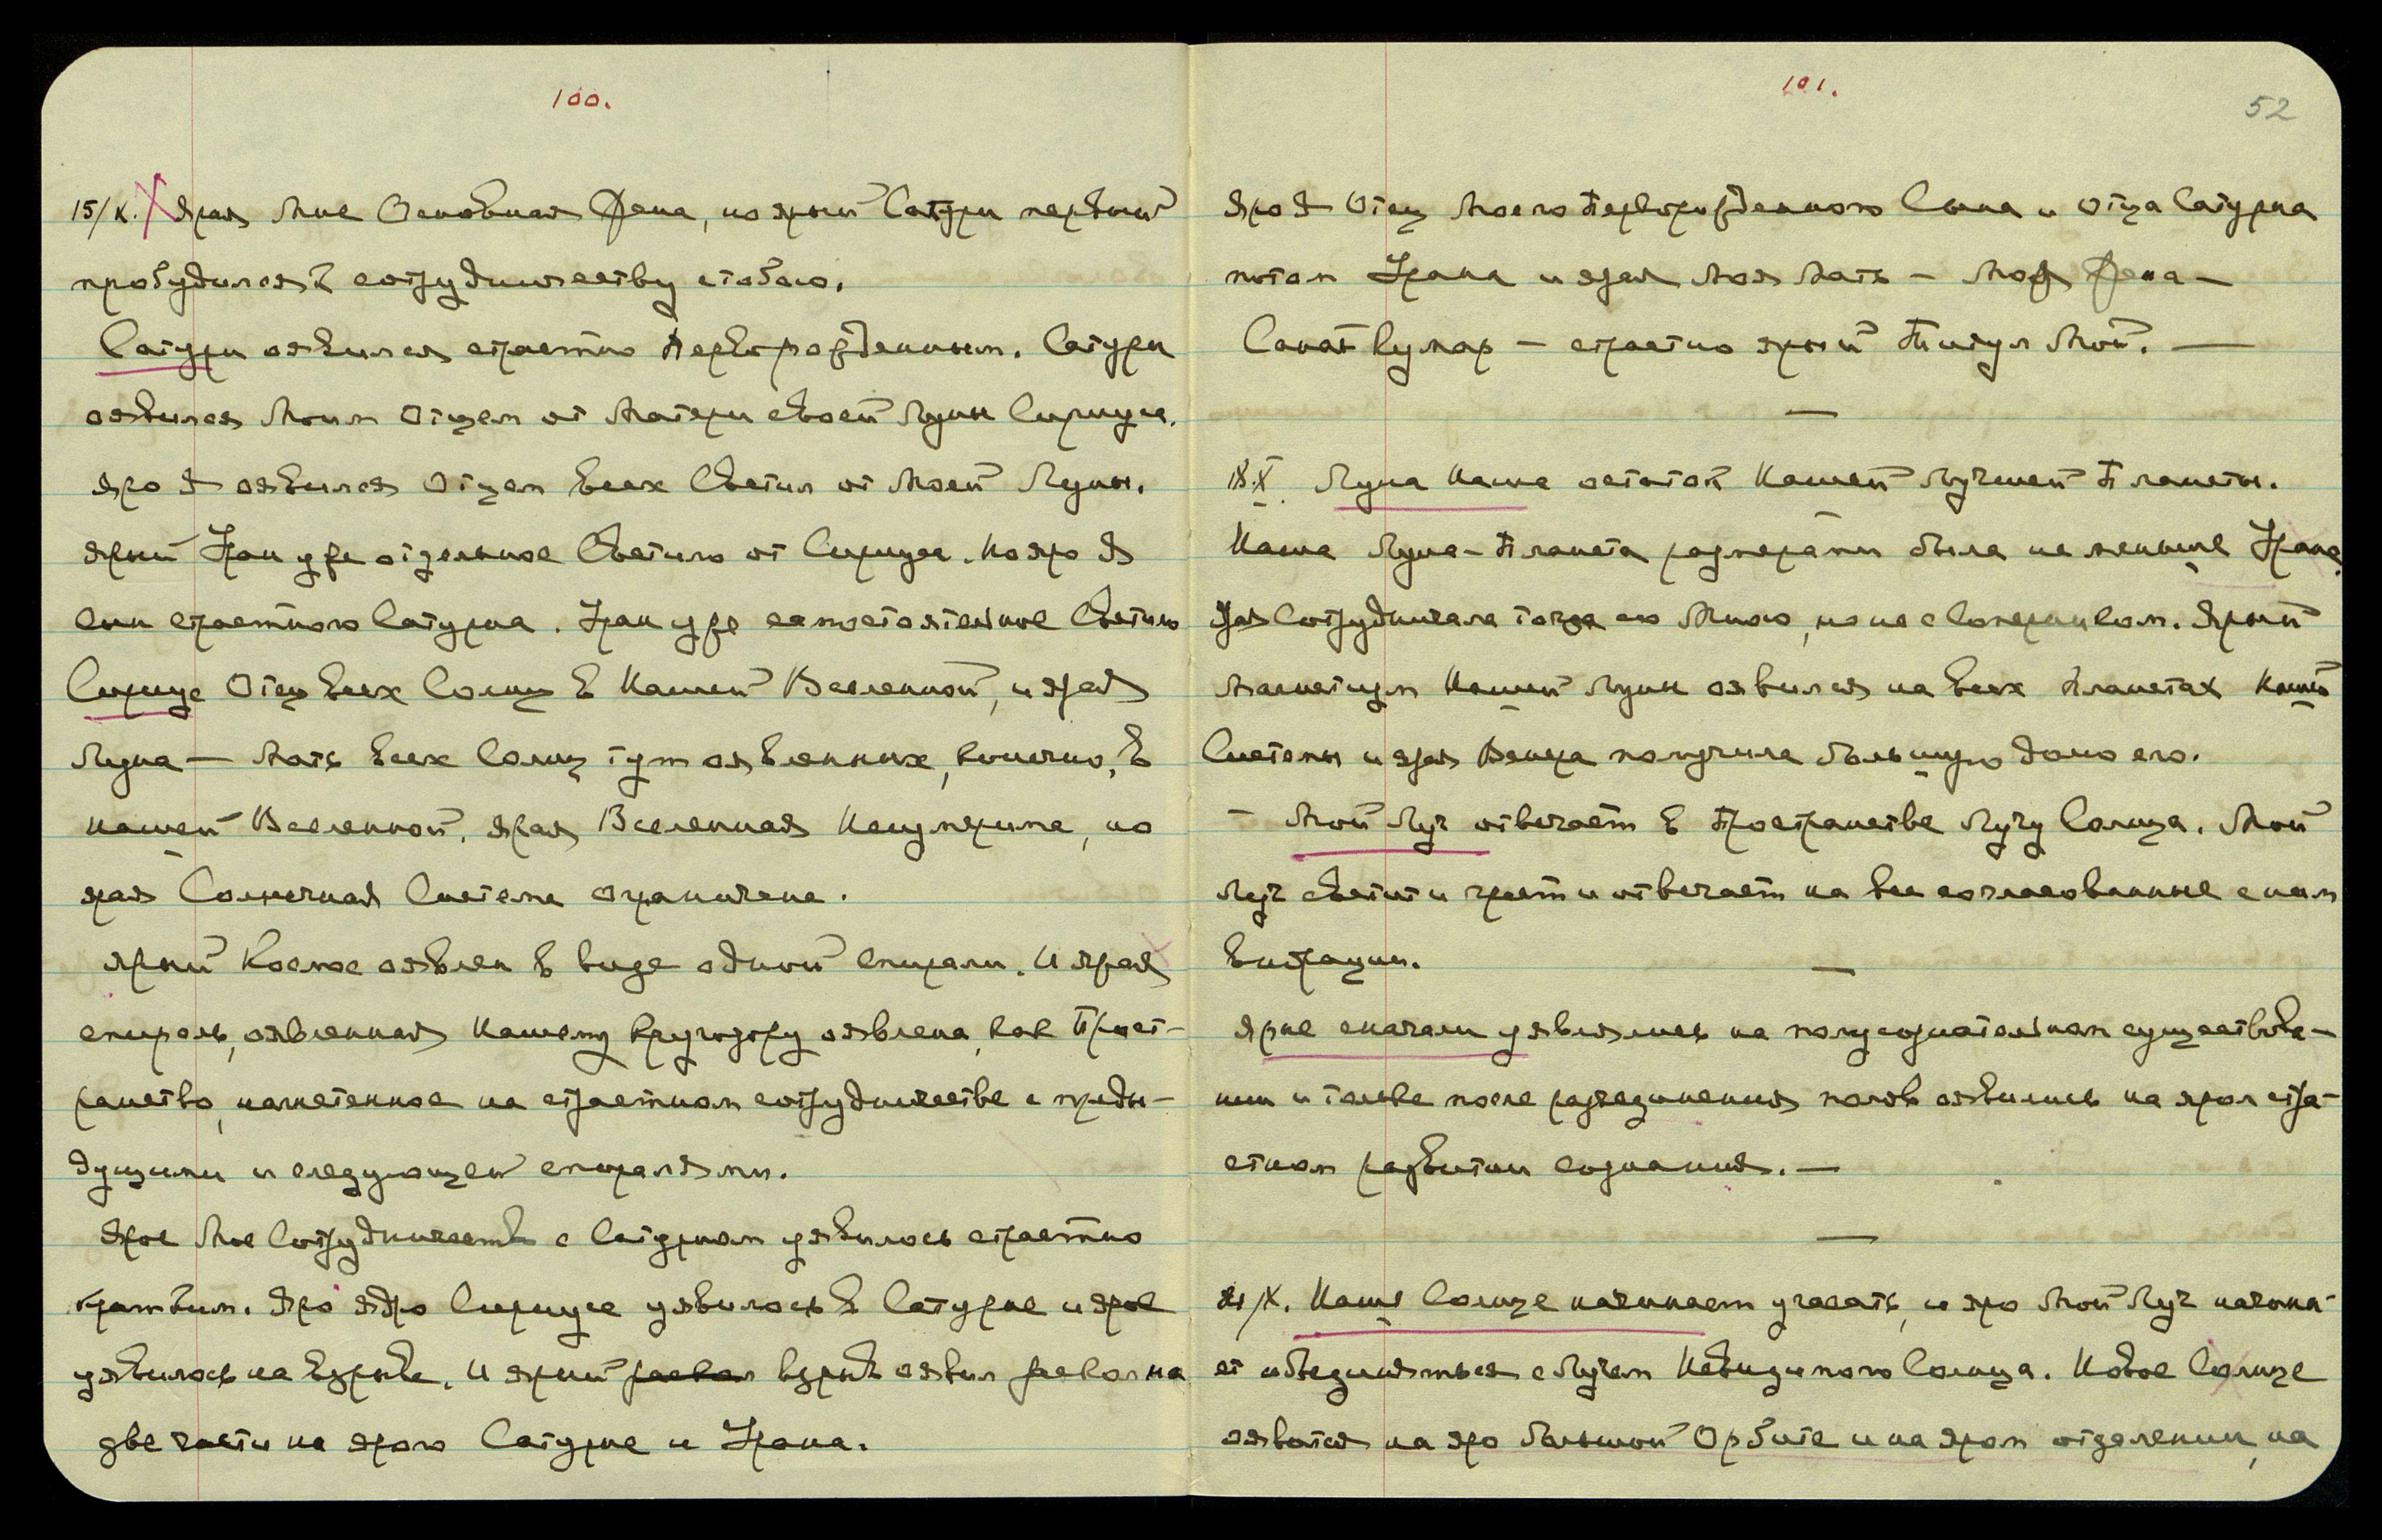 100.
15/X. Ярая Мне Основная Жена, но ярый Сатурн первый
пробудился к сотрудничеству с тобою.
Сатурн оявился страстно Перворожденным. Сатурн
оявился Моим Отцем от Матери своей Луны Сириуса.
Яро Я оявился Отцем всех Светил от Моей Луны.
Ярый Уран уже отдельное Светило от Сириуса. Но яро Я
сын страстного Сатурна. Уран уже самостоятельное Светило
Сириус Отец всех Солнц в Нашей Вселенной, и ярая
Луна — Мать всех Солнц тут оявленных, конечно, в
нашей Вселенной. Ярая Вселенная Неизмерима, но
ярая Солнечная Система ограничена.
Ярый Космос оявлен в виде одной спирали. И ярая
спираль, оявленная Нашему кругозору оявлена, как Прост-
ранство, намеченное на страстном сотрудничестве с преды-
дущими и следующей спиралями.
Ярое Мое Сотрудничество с Сатурном уявилось страстно
кратким. Яро ядро Сириуса уявилось в Сатурне и ярое
уявилось на взрыве. И ярый раскол взрыв оявил раскол на
две части на ярого Сатурна и Урана.
101.
52
Яро Я Отец Моего Перворожденного Сына и Отца Сатурна
потом Урана и ярая Моя Мать — Моя Жена —
Санат Кумар — страстно ярый Титул Мой. —
18.X. Луна Наша остаток Нашей Лучшей Планеты.
Наша Луна-Планета размерами была не меньше Урана
Ярая Сотрудничала тогда со Мною, но не с Соперником. Ярый
Магнетизм Нашей Луны оявился на всех планетах Нашей
Системы и ярая Венера получила большую долю его.
— Мой Луч отвечает в Пространстве Лучу Солнца. Мой
Луч светит и греет и отвечает на все согласованные с ним
вибрации.
Ярые сначала уявлялись на полусознательном существова-
нии и только после разъединения полов оявились на яром стра-
стном развитии сознания. —
21/X. Наше Солнце начинает угасать, и яро Мой Луч начина-
ет объединяться с Лучем Невидимого Солнца. Новое Солнце
оявится на яро большой Орбите и на яром отдалении, на